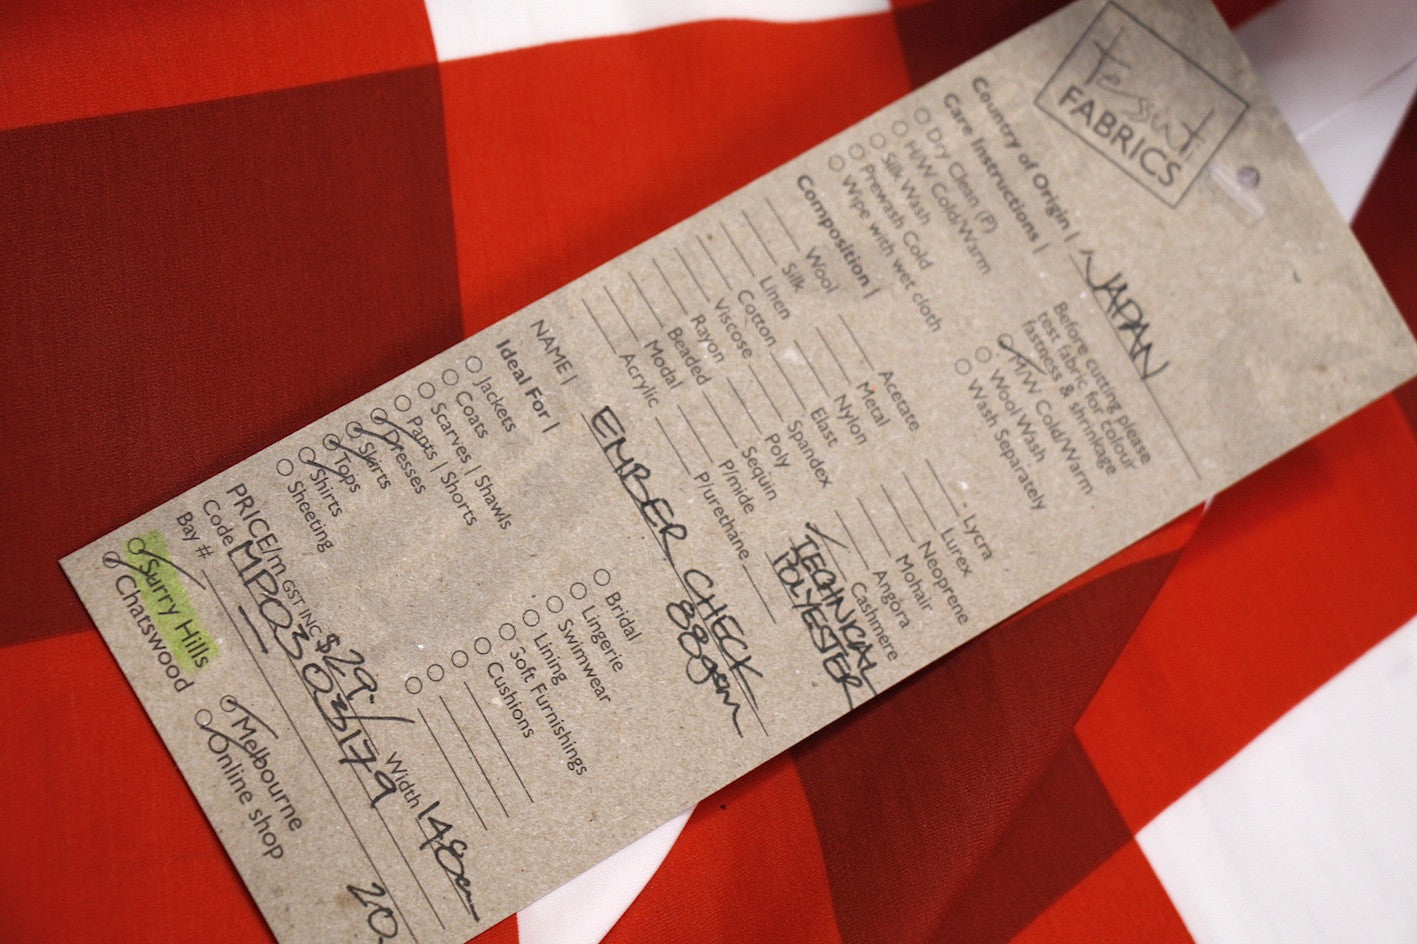 Tessuti
FABRICS
Country of Origin | JAPAN
Care Instructions |
Dry Clean (P)
H/W Cold/Warm
Silk Wash
Prewash Cold
Wipe with wet cloth
Before cutting please
test fabric for colour
fastness & shrinkage
M/W Cold/Warm
Wool Wash
Wash Separately
Composition |
Wool
Silk
Linen
Cotton
Viscose
Rayon
Beaded
Modal
Acrylic
Acetate
Metal
Nylon
Elast
Spandex
Poly
Sequin
P/mide
P/urethane
Lycra
Lurex
Neoprene
Mohair
Angora
Cashmere
TECHNICAL
POLYESTER
NAME | EMBER CHECK
88gsm
Ideal For |
Jackets
Coats
Scarves | Shawls
Pants | Shorts
Dresses
Skirts
Tops
Shirts
Sheeting
Bridal
Lingerie
Swimwear
Lining
Soft Furnishings
Cushions
PRICE/m GST INC $29.-/ Width 148cm
Code MPO303179
Bay # 20.
Surry Hills
Chatswood
Melbourne
Online shop